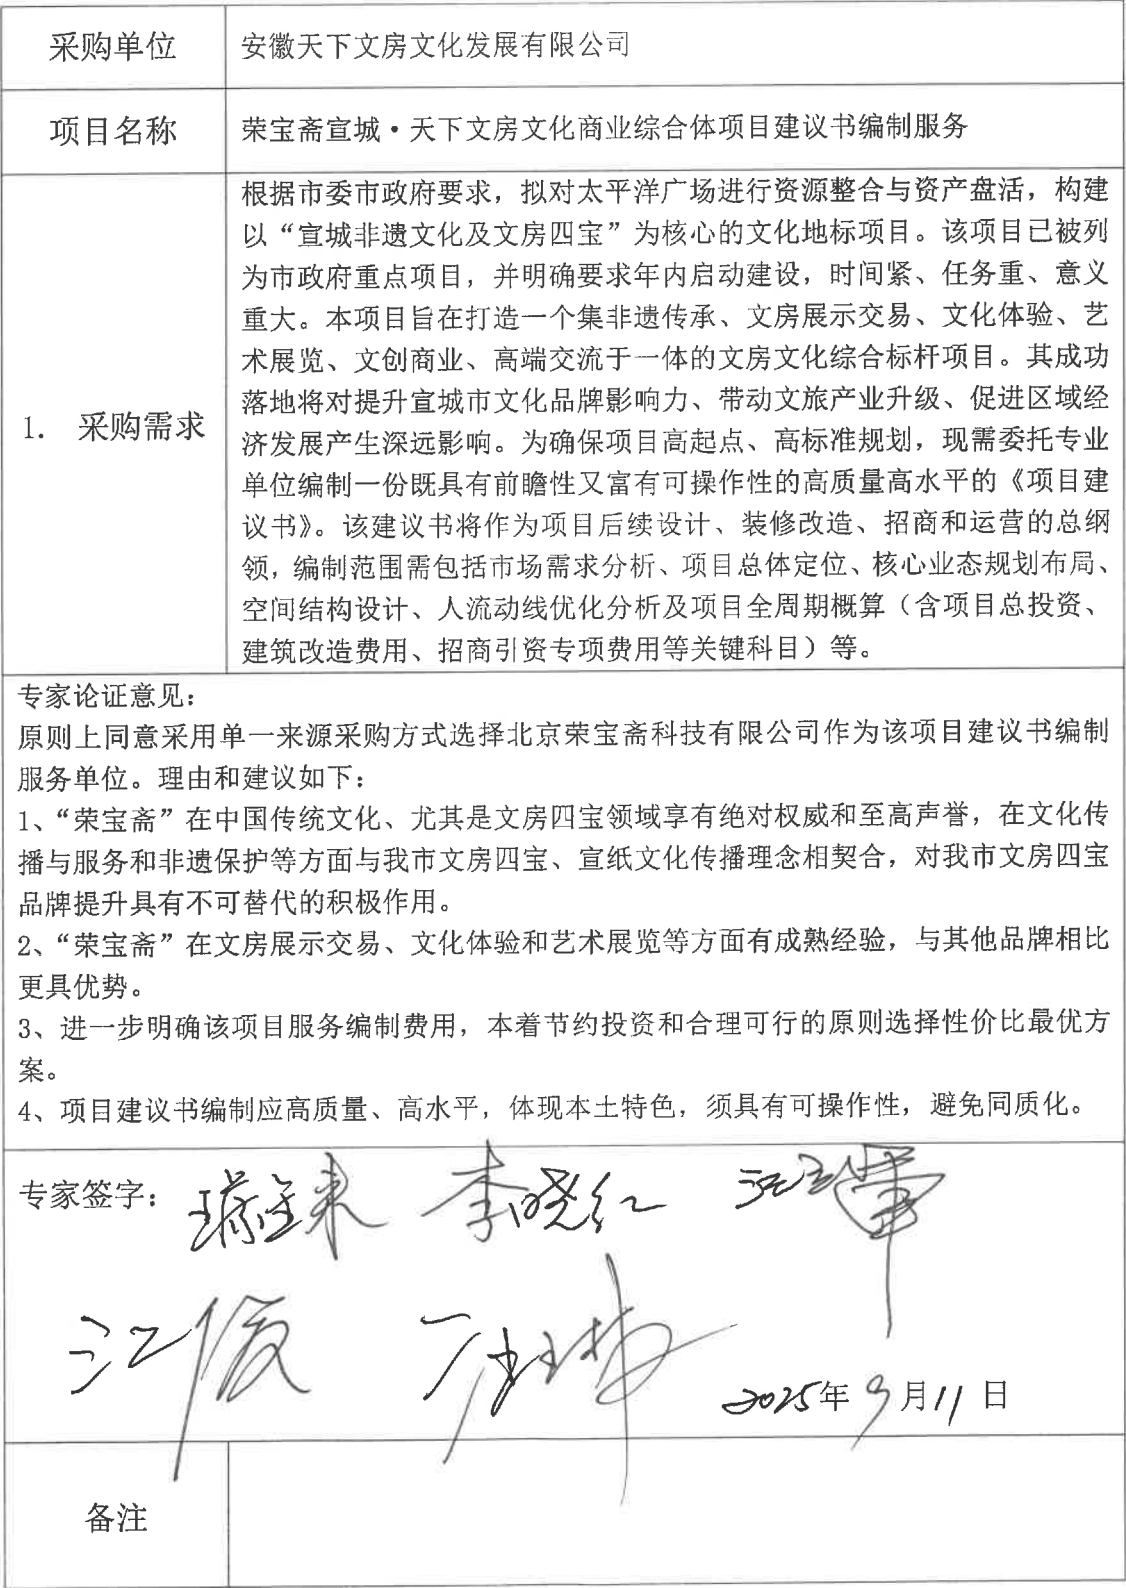 采购单位 安徽天下文房文化发展有限公司
项目名称 荣宝斋宣城·天下文房文化商业综合体项目建议书编制服务
根据市委市政府要求，拟对太平洋广场进行资源整合与资产盘活，构建
以“宣城非遗文化及文房四宝”为核心的文化地标项目。该项目已被列
为市政府重点项目，并明确要求年内启动建设，时间紧、任务重、意义
重大。本项目旨在打造一个集非遗传承、文房展示交易、文化体验、艺
术展览、文创商业、高端交流于一体的文房文化综合标杆项目。其成功
落地将对提升宣城市文化品牌影响力、带动文旅产业升级、促进区域经
1. 采购需求 济发展产生深远影响。为确保项目高起点、高标准规划，现需委托专业
单位编制一份既具有前瞻性又富有可操作性的高质量高水平的《项目建
议书》。该建议书将作为项目后续设计、装修改造、招商和运营的总纲
领，编制范围需包括市场需求分析、项目总体定位、核心业态规划布局、
空间结构设计、人流动线优化分析及项目全周期概算（含项目总投资、
建筑改造费用、招商引资专项费用等关键科目）等。
专家论证意见：
原则上同意采用单一来源采购方式选择北京荣宝斋科技有限公司作为该项目建议书编制
服务单位。理由和建议如下：
1、“荣宝斋”在中国传统文化、尤其是文房四宝领域享有绝对权威和至高声誉，在文化传
播与服务和非遗保护等方面与我市文房四宝、宣纸文化传播理念相契合，对我市文房四宝
品牌提升具有不可替代的积极作用。
2、“荣宝斋”在文房展示交易、文化体验和艺术展览等方面有成熟经验，与其他品牌相比
更具优势。
3、进一步明确该项目服务编制费用，本着节约投资和合理可行的原则选择性价比最优方
案。
4、项目建议书编制应高质量、高水平，体现本土特色，须具有可操作性，避免同质化。
专家签字： 李晓红
2025年9月11日
备注